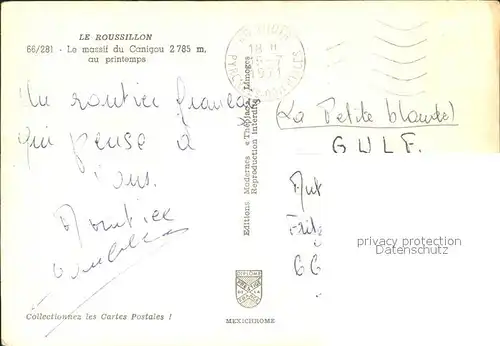 LE ROUSSILLON
66/281 - Le massif du Canigou 2 785 m,
au printemps
Un routier français
qui pense à
vous.
Routier
Editions Modernes « Théojac » Limoges
Reproduction interdite
18 H
(La Petite blande)
GULF.
Aut
Fritz
66
privacy protection
Datenschutz
DIPLOME
Collectionnez les Cartes Postales !
MEXICHROME